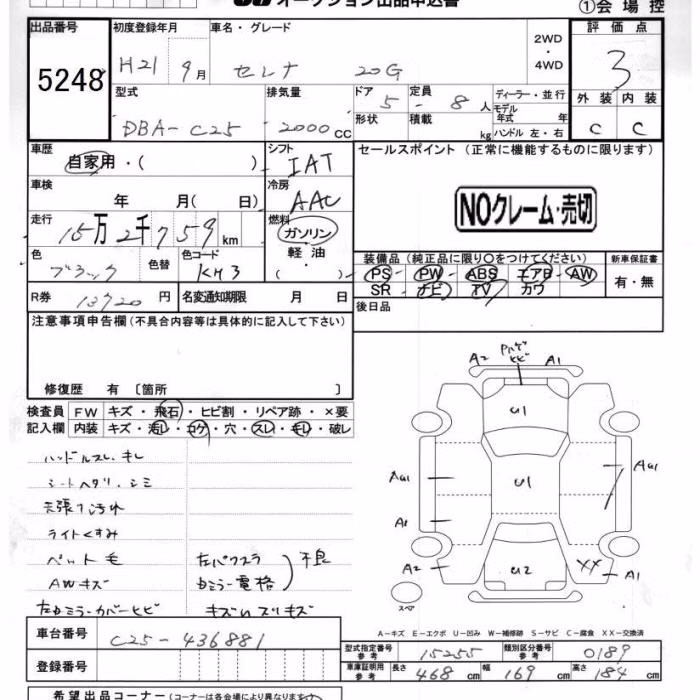 オークション出品申込書
①会場控
出品番号 初度登録年月 車名・グレード 2WD ・4WD 評価点
5248 H21 9月 セレナ 20G 3
型式 排気量 ドア 5 定員 - 8人 ディーラー・並行 外装 内装
DBA-C25 2000cc 形状 積載 kg モデル年式 年 ハンドル 左・右 C C
車歴 自家用・( ) シフト IAT セールスポイント (正常に機能するものに限ります)
車検 年 月( 日) 冷房 AAC NOクレーム・売切
走行 15万2千759km 燃料 ガソリン 軽油 ( )
色 ブラック 色替 色コード KH3
装備品 (純正品に限り○をつけてください) 新車保証書
PS PW ABS エアB AW 有・無
SR ナビ TV カワ
R券 13720円 名変通知期限 月 日 後日品
注意事項申告欄 (不具合内容等は具体的に記入して下さい)
修復歴 有 〔箇所 〕
検査員 FW キズ・飛石・ヒビ割・リペア跡・×要
記入欄 内装 キズ・汚レ・コゲ・穴・スレ・モレ・破レ
ハンドルスレ、キレ
シートヘタリ、シミ
天張り汚れ
ライトくすみ
ペット毛 左パワスラ
AWキズ 右ミラー電格 不良
左右ミラーカバーヒビ キズUズリキズ
A2 PハゲヒビA1
U1
AU1 U1 AU1
A1
A2 U2 XX A1
スペア
A-キズ E-エクボ U-凹み W-補修跡 S-サビ C-腐食 XX-交換済
車台番号 C25-436881
登録番号
型式指定番号 参考 15255 類別区分番号 参考 0189
車庫証明用 参考 長さ 468cm 幅 169cm 高さ 184cm
希望出品コーナー (コーナーは各会場により異なります)